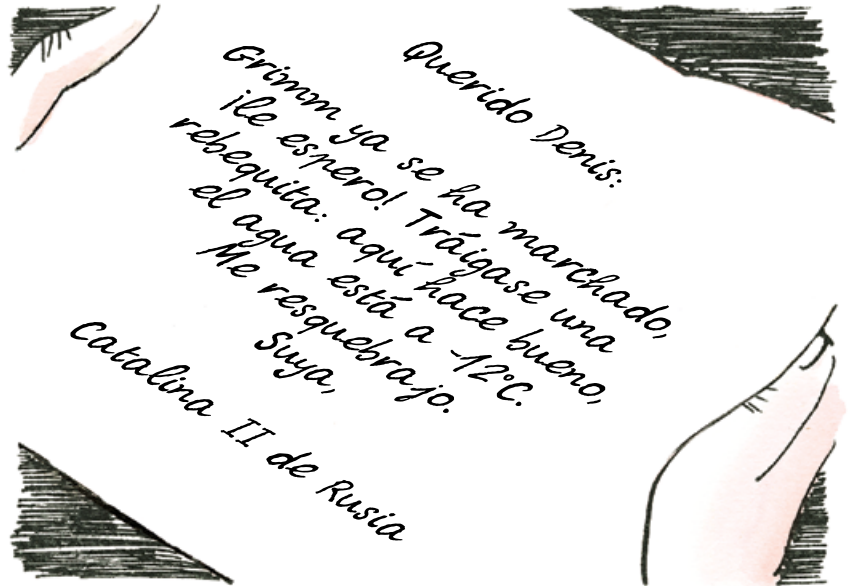 Querido Denis:
Grimm ya se ha marchado,
¡le espero! Tráigase una
rebequita: aquí hace bueno,
el agua está a -12°C.
Me resquebrajo.
Suya,
Catalina II de Rusia